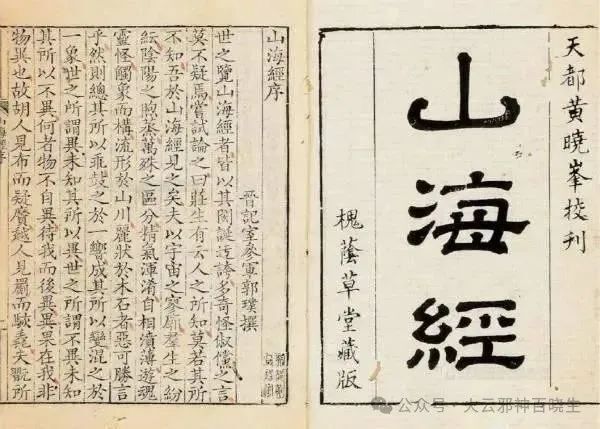 天都黃曉峯挍刊
山海經
槐蔭草堂藏版
山海經序
晉記室參軍郭璞撰
世之覽山海經者皆以其閎誕迃誇多奇怪俶儻之言
莫不疑焉嘗試論之曰莊生有云人之所知莫若其所
不知吾於山海經見之矣夫以宇宙之寥廓羣生之紛
紜陰陽之煦烝萬殊之區分精氣渾淆自相濆薄遊魂
靈怪觸象而構流形於山川麗狀於木石者惡可勝言
乎然則總其所以乖鼓之於一響成其所以變混之於
一象世之所謂異未知其所以異世之所謂不異未知
其所以不異何者物不自異待我而後異異果在我非
物異也故胡人見布而疑黂越人見罽而駭毳夫翫所
公众号·大云邪神百晓生